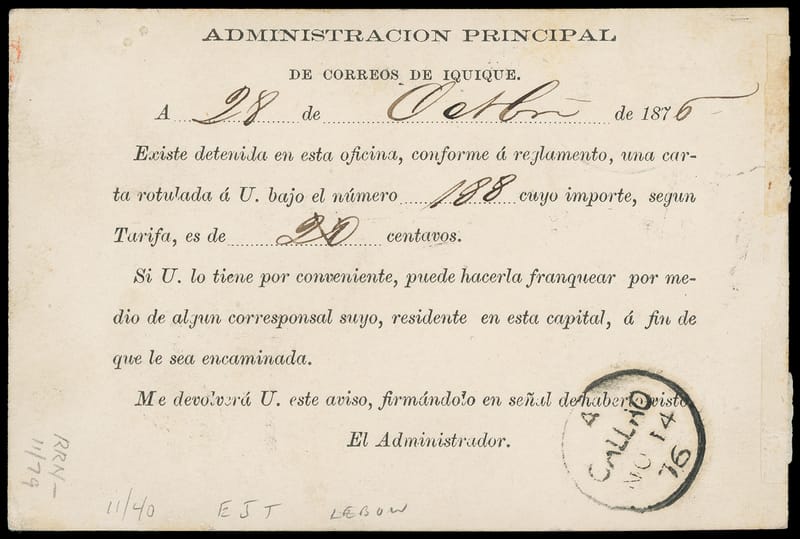 ADMINISTRACION PRINCIPAL
DE CORREOS DE IQUIQUE.
A 28 de Octbre de 1876
Existe detenida en esta oficina, conforme á reglamento, una car-
ta rotulada á U. bajo el número 188 cuyo importe, segun
Tarifa, es de 20 centavos.
Si U. lo tiene por conveniente, puede hacerla franquear por me-
dio de algun corresponsal suyo, residente en esta capital, á fin de
que le sea encaminada.
Me devolverá U. este aviso, firmándolo en señal de haberlo visto
El Administrador.
A
CALLAO
NO 14
76
RRN-
11/79
11/40 EJT LEBOW